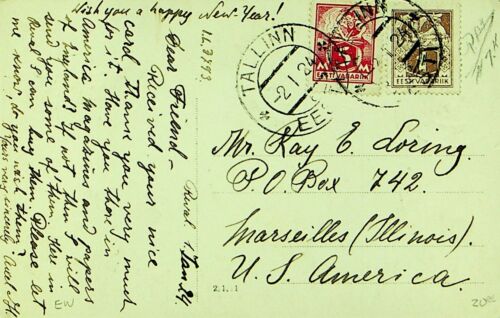 Wish you a happy New-Year!
Reval 1. Jan. 24.
Dear Friend -
Received your nice
card, thank you very much
for it. Have you there in
America magasins and papers
of England? If not then I will
send you some of them. Here in
Reval I can buy them. Please let
me know, do you wish them?
Yours very sincerely
No 3793.
TALLINN
-2.1.24
EESTI
TALLINN
5 M
EESTI VABARIIK
EESTI VABARIIK
Mr. Kay E. Loring.
P.O. Box 742.
Marseilles (Illinois).
U. S. America.
2. 1. .1
EW
20